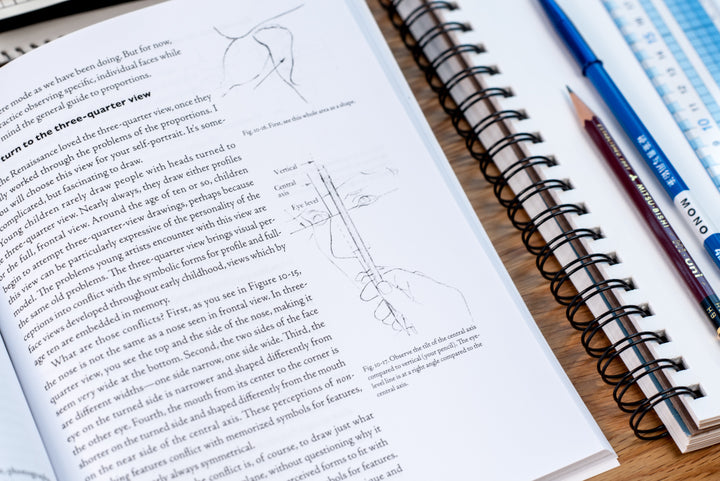 ere mode as we have been doing. But for now,
practice observing specific, individual faces while
mind the general guide to proportions.
turn to the three-quarter view
the Renaissance loved the three-quarter view, once they
worked through the problems of the proportions. I
you will choose this view for your self-portrait. It's some-
complicated, but fascinating to draw.
Young children rarely draw people with heads turned to
the three-quarter view. Nearly always, they draw either profiles
or the full, frontal view. Around the age of ten or so, children
begin to attempt three-quarter-view drawings, perhaps because
this view can be particularly expressive of the personality of the
model. The problems young artists encounter with this view are
the same old problems. The three-quarter view brings visual per-
ceptions into conflict with the symbolic forms for profile and full-
face views developed throughout early childhood, views which by
age ten are embedded in memory.
What are those conflicts? First, as you see in Figure 10-15,
the nose is not the same as a nose seen in frontal view. In three-
quarter view, you see the top and the side of the nose, making it
seem very wide at the bottom. Second, the two sides of the face
are different widths—one side narrow, one side wide. Third, the
eye on the turned side is narrower and shaped differently from
the other eye. Fourth, the mouth from its center to the corner is
shorter on the turned side and shaped differently from the mouth
on the near side of the central axis. These perceptions of non-
features conflict with memorized symbols for features,
always symmetrical.
conflict is, of course, to draw just what
plane, without questioning why it
perceived forms to fit with
symbols for features.
and
Fig. 10-16. First, see this whole area as a shape.
Vertical
Central
axis
Eye level
Fig. 10-17. Observe the tilt of the central axis
compared to vertical (your pencil). The eye-
level line is at a right angle compared to the
central axis.
MONO
uni
10